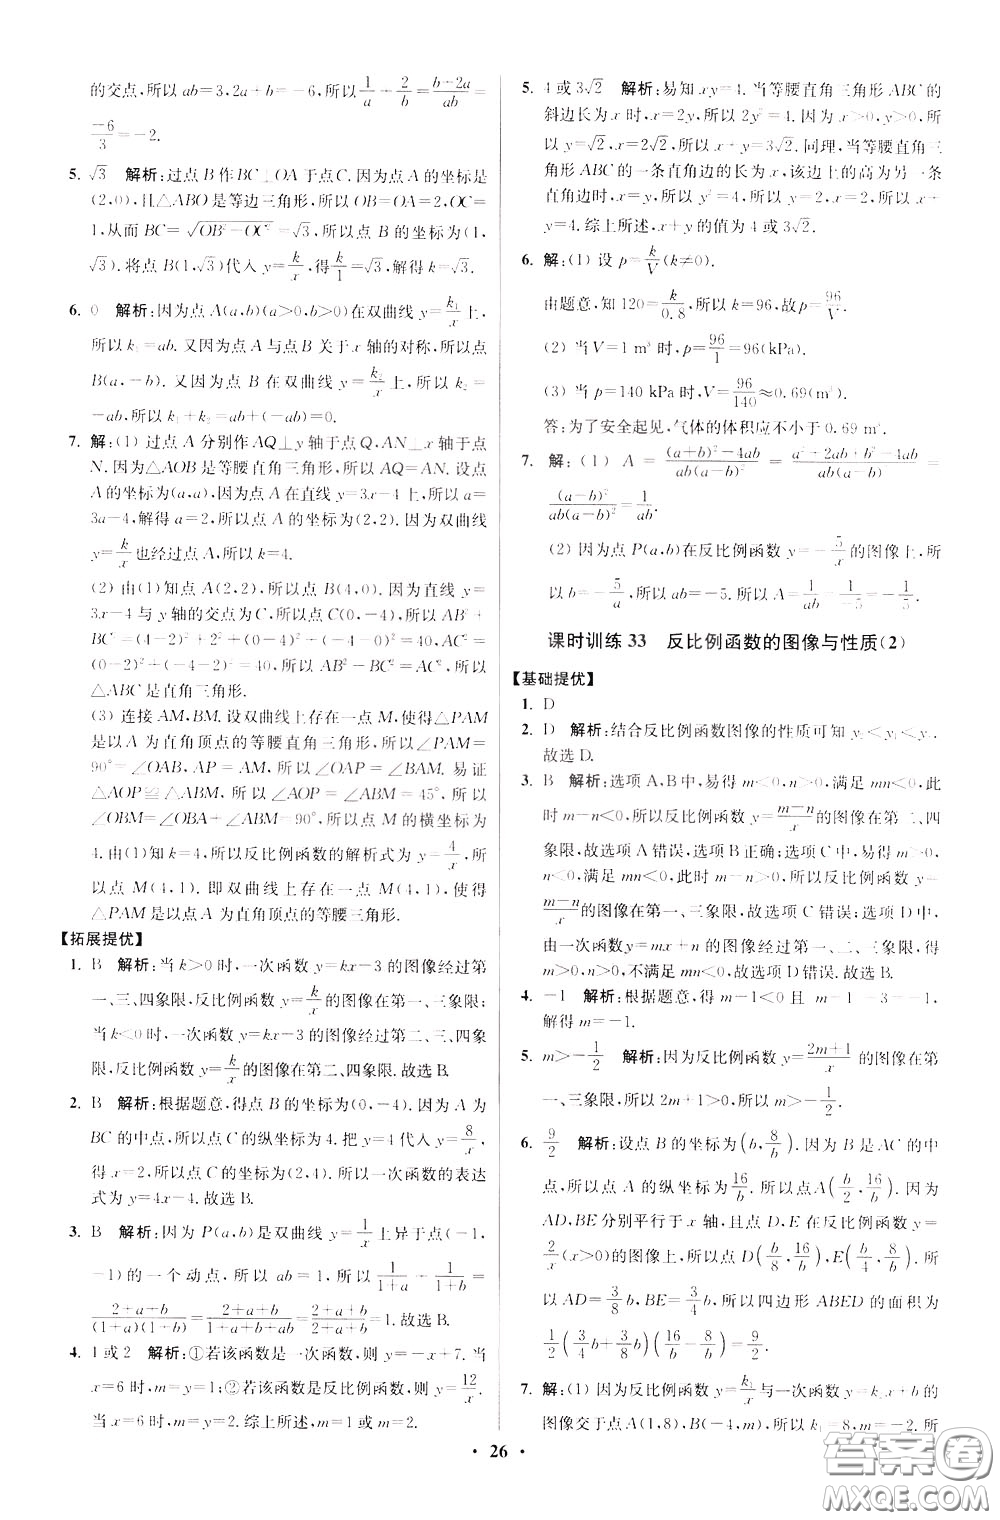 的交点,所以 ab=3,2a+b=-6,所以 1/a - 2/b = (b-2a)/ab =
-6/3 = -2.
5. √3 解析:过点 B 作 BC⊥OA 于点 C. 因为点 A 的坐标是
(2,0),且△ABO 是等边三角形,所以 OB=OA=2,OC=
1,从而 BC=√(OB²-OC²)=√3,所以点 B 的坐标为(1,
√3). 将点 B(1,√3)代入 y=k/x,得 k/1=√3,解得 k=√3.
6. 0 解析:因为点 A(a,b)(a>0,b>0)在双曲线 y=k₁/x 上,
所以 k₁=ab. 又因为点 A 与点 B 关于 x 轴的对称,所以点
B(a,-b). 又因为点 B 在双曲线 y=k₂/x 上,所以 k₂=
-ab,所以 k₁+k₂=ab+(-ab)=0.
7. 解:(1) 过点 A 分别作 AQ⊥y 轴于点 Q,AN⊥x 轴于点
N. 因为△AOB 是等腰直角三角形,所以 AQ=AN. 设点
A 的坐标为(a,a),因为点 A 在直线 y=3x-4 上,所以 a=
3a-4,解得 a=2,所以点 A 的坐标为(2,2). 因为双曲线
y=k/x 也经过点 A,所以 k=4.
(2) 由(1)知点 A(2,2),所以点 B(4,0). 因为直线 y=
3x-4 与 y 轴的交点为 C,所以点 C(0,-4),所以 AB²+
BC²=(4-2)²+(0-2)²+(4-0)²+(0+4)²=40,AC²=
(2-0)²+(2+4)²=40,所以 AB²+BC²=AC²,所以
△ABC 是直角三角形.
(3) 连接 AM,BM. 设双曲线上存在一点 M,使得△PAM
是以 A 为直角顶点的等腰直角三角形,所以∠PAM=
90°=∠OAB,AP=AM,所以∠OAP=∠BAM. 易证
△AOP≌△ABM,所以∠AOP=∠ABM=45°,所以
∠OBM=∠OBA+∠ABM=90°,所以点 M 的横坐标为
4. 由(1)知 k=4,所以反比例函数的解析式为 y=4/x,所
以点 M(4,1). 即双曲线上存在一点 M(4,1),使得
△PAM 是以点 A 为直角顶点的等腰三角形.
【拓展提优】
1. B 解析:当 k>0 时,一次函数 y=kx-3 的图像经过第
一、三、四象限,反比例函数 y=k/x 的图像在第一、三象限;
当 k<0 时,一次函数 y=kx-3 的图像经过第二、三、四象
限,反比例函数 y=k/x 的图像在第二、四象限. 故选 B.
2. B 解析:根据题意,得点 B 的坐标为(0,-4). 因为 A 为
BC 的中点,所以点 C 的纵坐标为 4. 把 y=4 代入 y=8/x,
得 x=2,所以点 C 的坐标为(2,4). 所以一次函数的表达
式为 y=4x-4. 故选 B.
3. B 解析:因为 P(a,b)是双曲线 y=1/x 上异于点(-1,
-1)的一个动点,所以 ab=1,所以 1/(1+a) + 1/(1+b) =
(2+a+b)/((1+a)(1+b)) = (2+a+b)/(1+a+b+ab) = (2+a+b)/(2+a+b) = 1. 故选 B.
4. 1 或 2 解析:①若该函数是一次函数,则 y=-x+7. 当
x=6 时,m=y=1;②若该函数是反比例函数,则 y=12/x.
当 x=6 时,m=y=2. 综上所述,m=1 或 m=2.
5. 4 或 3√2 解析:易知 xy=4. 当等腰直角三角形 ABC 的
斜边长为 x 时,x=2y,所以 2y²=4. 因为 x>0,y>0,所
以 y=√2,x=2√2,所以 x+y=3√2. 同理,当等腰直角三
角形 ABC 的一条直角边的长为 x 时,该边上的高为另一条
直角边时,x=y,所以 y²=4,所以 y=2,x=2,所以 x+
y=4. 综上所述,x+y 的值为 4 或 3√2.
6. 解:(1) 设 p=k/V(k≠0).
由题意,知 120=k/0.8,所以 k=96,故 p=96/V.
(2) 当 V=1 m³ 时,p=96/1=96(kPa).
(3) 当 p=140 kPa 时,V=96/140≈0.69(m³).
答:为了安全起见,气体的体积应不小于 0.69 m³.
7. 解:(1) A = ((a+b)²-4ab)/(ab(a-b)²) = (a²+2ab+b²-4ab)/(ab(a-b)²) =
(a-b)²/(ab(a-b)²) = 1/ab.
(2) 因为点 P(a,b)在反比例函数 y=-5/x 的图像上,所
以 b=-5/a,所以 ab=-5. 所以 A=1/ab=1/-5=-1/5.
课时训练 33 反比例函数的图像与性质(2)
【基础提优】
1. D
2. D 解析:结合反比例函数图像的性质可知
故选 D.
3. B 解析:选项 A,B 中,易得 m<0,n>0,满足 mn<0,此
时 m-n<0,所以反比例函数 y=(m-n)/x 的图像在第二、四
象限,故选项 A 错误,选项 B 正确;选项 C 中,易得 m>0,
n<0,满足 mn<0,此时 m-n>0,所以反比例函数 y=
(m-n)/x 的图像在第一、三象限,故选项 C 错误;选项 D 中,
由一次函数 y=mx+n 的图像经过第一、二、三象限,得
m>0,n>0,不满足 mn<0,故选项 D 错误. 故选 B.
4. -1 解析:根据题意,得 m-1<0 且 m²-2=-1,
解得 m=-1.
5. m>-1/2 解析:因为反比例函数 y=(2m+1)/x 的图像在第
一、三象限,所以 2m+1>0,所以 m>-1/2.
6. 9/2 解析:设点 B 的坐标为(b,8/b). 因为 B 是 AC 的中
点,所以点 A 的纵坐标为 16/b. 所以点 A(b/2,16/b). 因为
AD,BE 分别平行于 x 轴,且点 D,E 在反比例函数 y=
2/x(x>0)的图像上,所以点 D(b/8,16/b),E(b/4,8/b). 所
以 AD=3/8 b,BE=3/4 b,所以四边形 ABED 的面积为
1/2(3/4 b+3/8 b)(16/b-8/b)=9/2.
7. 解:(1) 因为反比例函数 y=k₁/x 与一次函数 y=k₂x+b 的
图像交于点 A(1,8),B(-4,m),所以 k₁=8,m=-2. 所
· 26 ·
答案圈
MXQE.COM